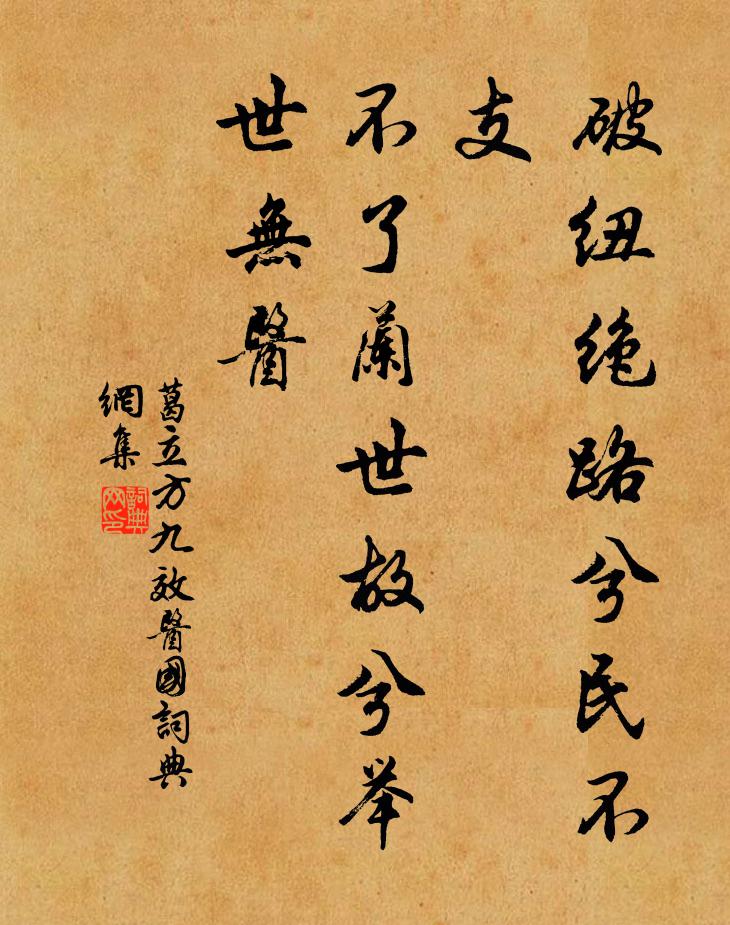 破纽绝路兮民不
支
不了蘭世故兮举
世無醫
葛立方九效醫國詞典
網集
詞典
网印